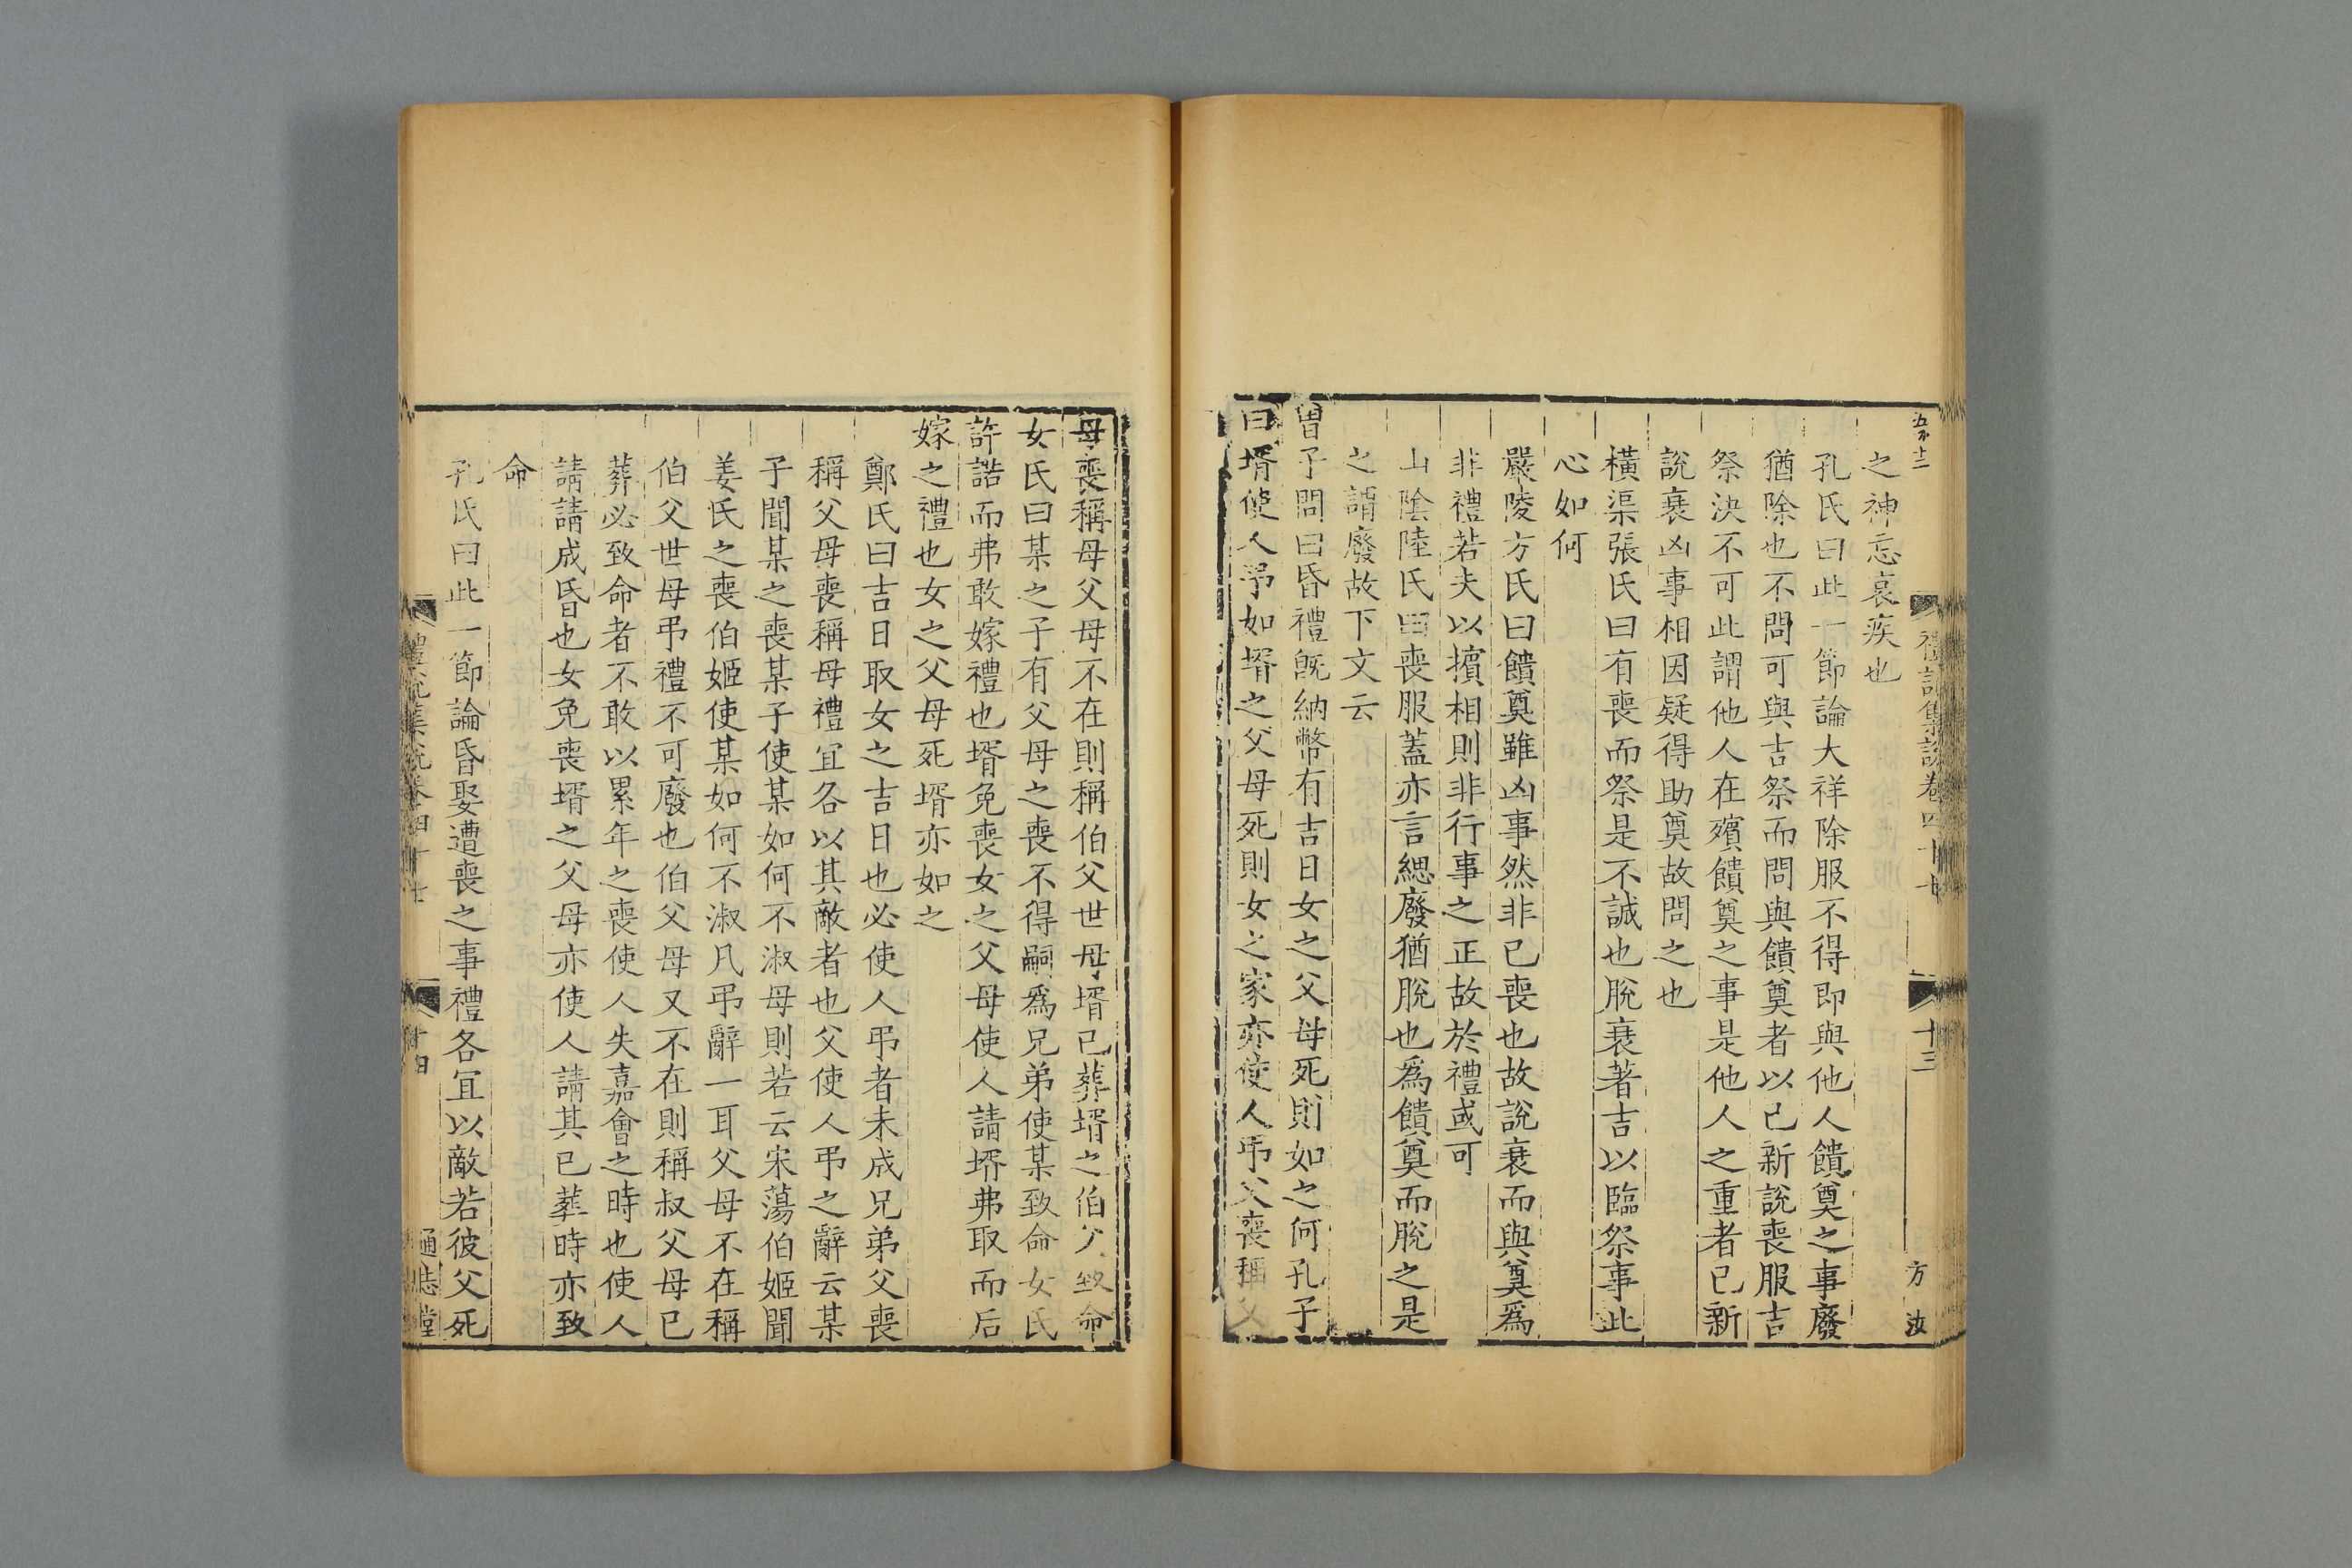 禮記集說卷四十七
十三
方汝
之神忘哀疾也
孔氏曰此一節論大祥除服不得即與他人饋奠之事廢
猶除也不問可與吉祭而問與饋奠者以己新說喪服吉
祭決不可此謂他人在殯饋奠之事是他人之重者已新
說衰凶事相因疑得助奠故問之也
橫渠張氏曰有喪而祭是不誠也脫衰著吉以臨祭事此
心如何
嚴陵方氏曰饋奠雖凶事然非已喪也故說衰而與奠爲
非禮若夫以擯相則非行事之正故於禮或可
山陰陸氏曰喪服蓋亦言緦廢猶脫也爲饋奠而脫之是
之謂廢故下文云
曾子問曰昏禮旣納幣有吉日女之父母死則如之何孔子
曰壻使人弔如壻之父母死則女之家亦使人弔父喪稱父
母喪稱母父母不在則稱伯父世母壻已葬壻之伯父致命
女氏曰某之子有父母之喪不得嗣爲兄弟使某致命女氏
許諾而弗敢嫁禮也壻免喪女之父母使人請壻弗取而后
嫁之禮也女之父母死壻亦如之
鄭氏曰吉日取女之吉日也必使人弔者未成兄弟父喪
稱父母喪稱母禮宜各以其敵者也父使人弔之辭云某
子聞某之喪某子使某如何不淑母則若云宋蕩伯姬聞
姜氏之喪伯姬使某如何不淑凡弔辭一耳父母不在稱
伯父世母弔禮不可廢也伯父母又不在則稱叔父母已
葬必致命者不敢以累年之喪使人失嘉會之時也使人
請請成昏也女免喪壻之父母亦使人請其已葬時亦致
命
孔氏曰此一節論昏娶遭喪之事禮各宜以敵若彼父死
禮記集說卷四十七
十四
通志堂